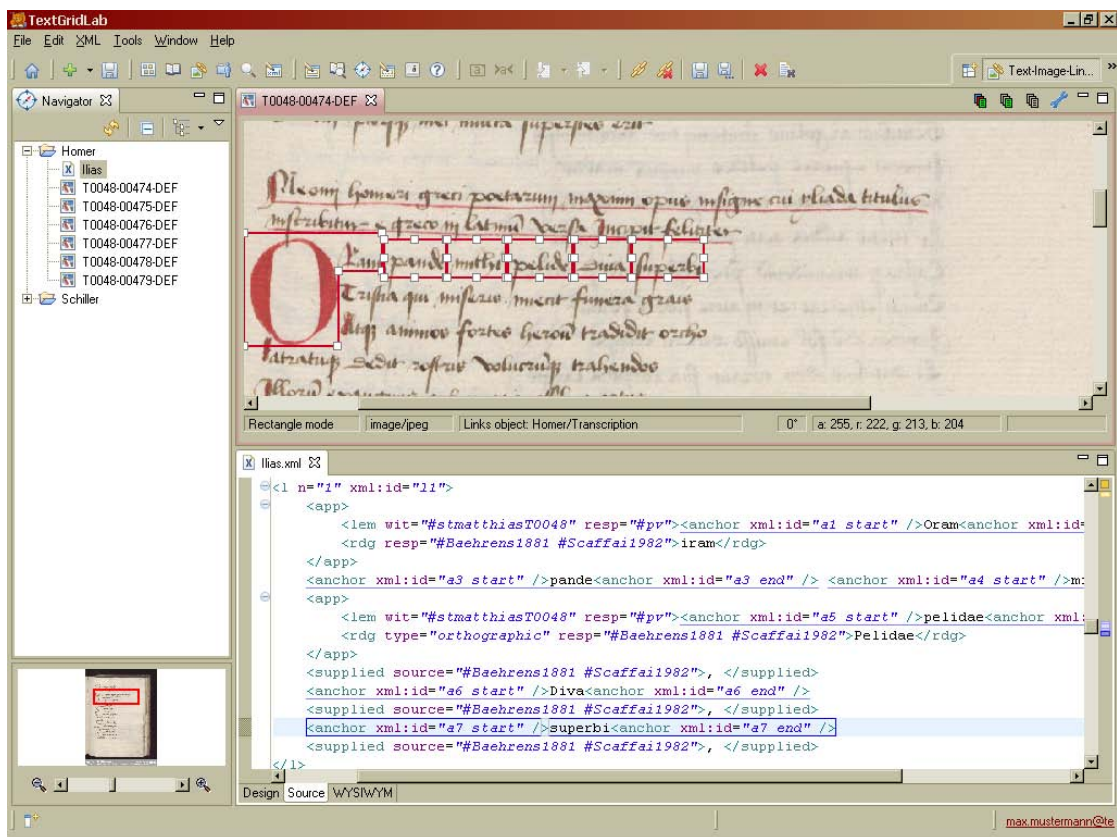 TextGridLab
File Edit XML Tools Window Help
Text-Image-Lin... »
Navigator
Homer
Ilias
T0048-00474-DEF
T0048-00475-DEF
T0048-00476-DEF
T0048-00477-DEF
T0048-00478-DEF
T0048-00479-DEF
Schiller
T0048-00474-DEF
homeri greci poetarum opus insigne cui yliada titulus
greco in latinū Incipit feliciter
O
pande michi pelide Diva superbi
Tristia qui miseris iniecit funera grais
Atq animos fortes heroū tradidit orcho
latratuq dedit rostris volucruq trahendos
Rectangle mode image/jpeg Links object: Homer/Transcription 0° a: 255, r: 222, g: 213, b: 204
Ilias.xml
<l n="1" xml:id="l1">
<app>
<lem wit="#stmatthiasT0048" resp="#pv"><anchor xml:id="a1 start" />Oram<anchor xml:id=
<rdg resp="#Baehrens1881 #Scaffai1982">iram</rdg>
</app>
<anchor xml:id="a3 start" />pande<anchor xml:id="a3 end" /> <anchor xml:id="a4 start" />mi
<app>
<lem wit="#stmatthiasT0048" resp="#pv"><anchor xml:id="a5 start" />pelidae<anchor xml:
<rdg type="orthographic" resp="#Baehrens1881 #Scaffai1982">Pelidae</rdg>
</app>
<supplied source="#Baehrens1881 #Scaffai1982">, </supplied>
<anchor xml:id="a6 start" />Diva<anchor xml:id="a6 end" />
<supplied source="#Baehrens1881 #Scaffai1982">, </supplied>
<anchor xml:id="a7 start" />superbi<anchor xml:id="a7 end" />
<supplied source="#Baehrens1881 #Scaffai1982">, </supplied>
</l>
Design Source WYSIWYM
max.mustermann@te